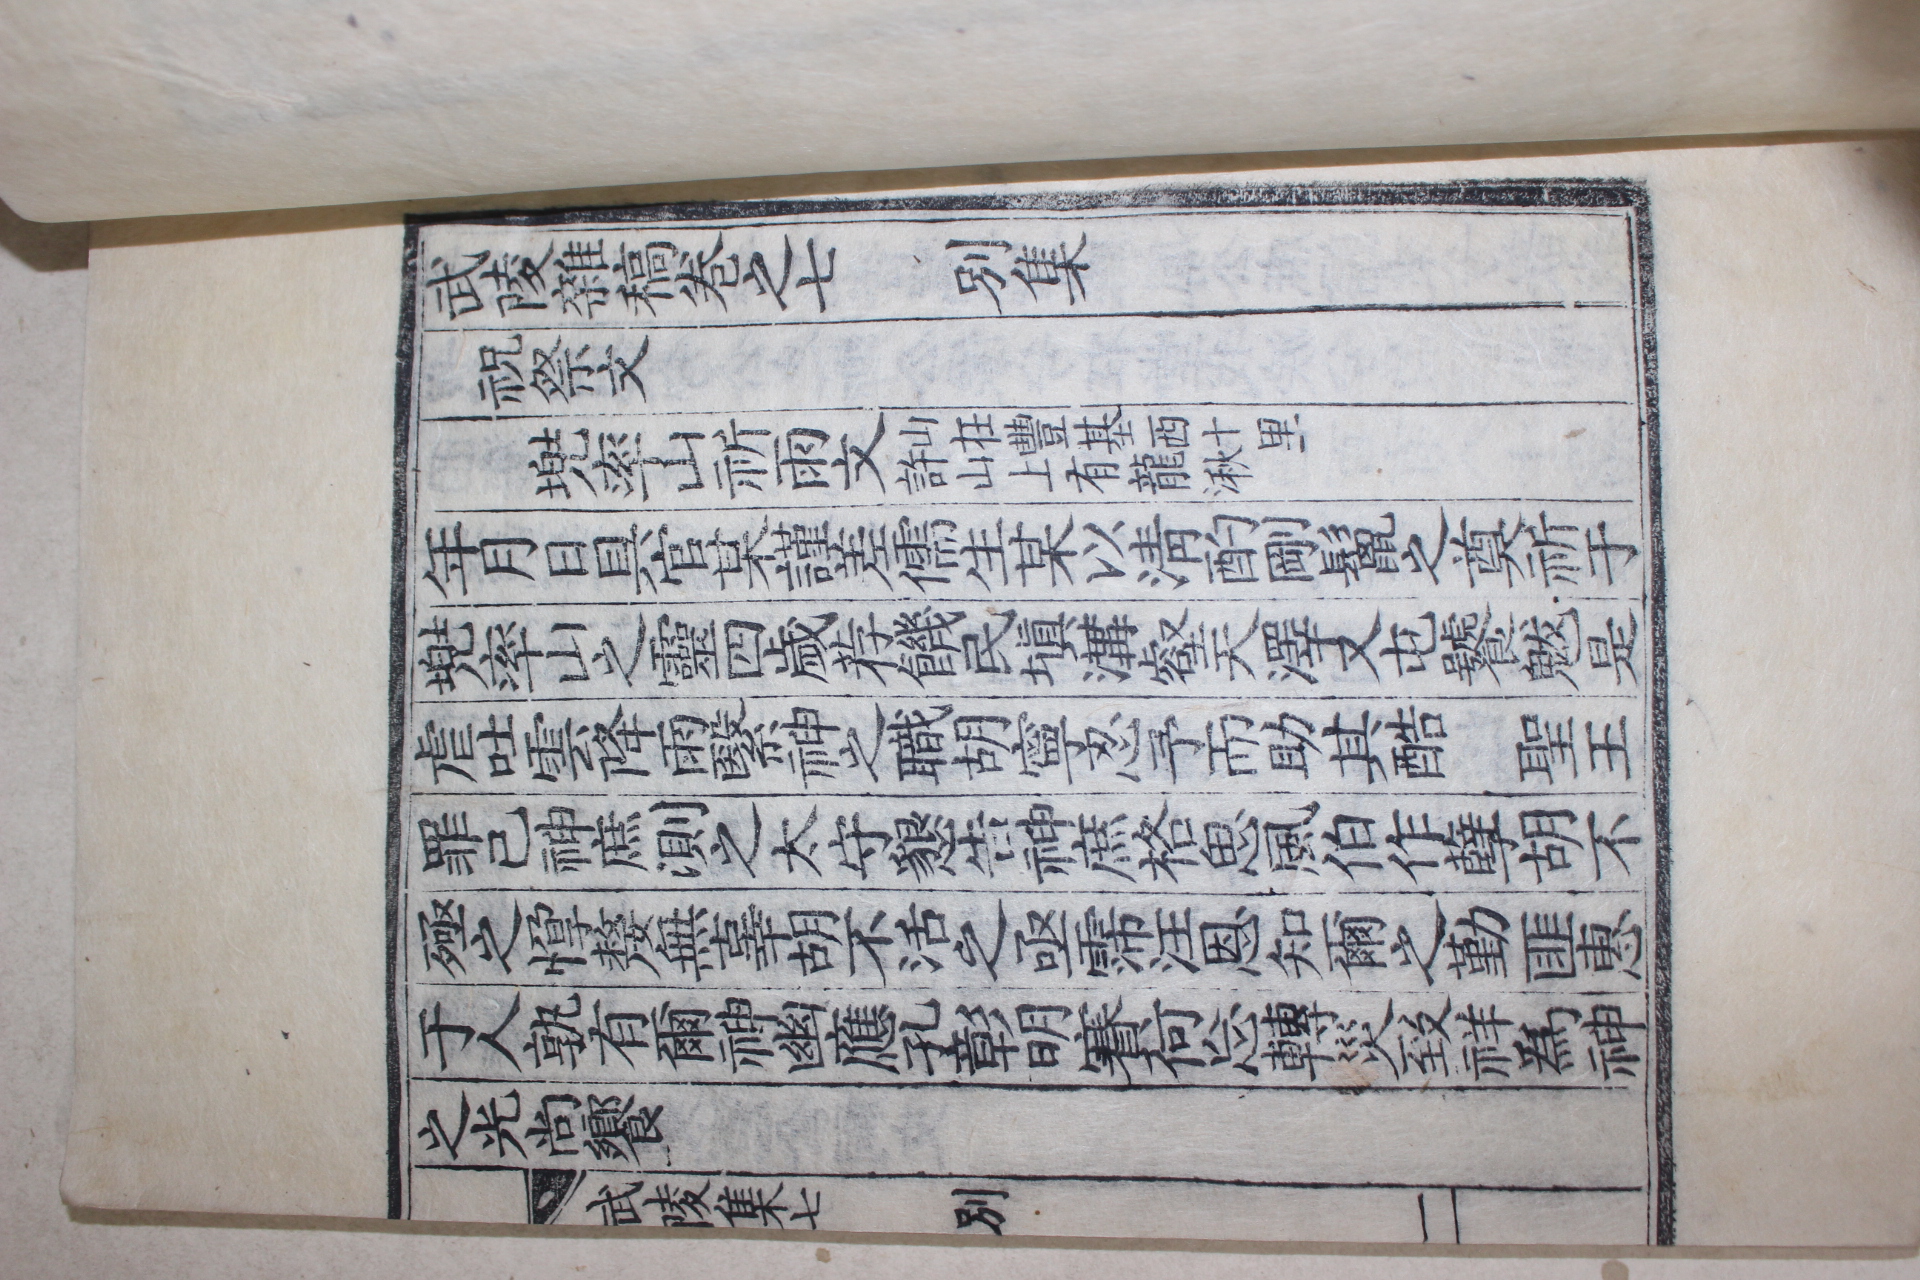 武陵雜稿卷之七 別集
祝祭文
兜率山祈雨文 山在豐基西十里許山上有龍湫
年月日具官某謹差儒生某以清酌剛鬣之奠祈于
兜率山之靈四歲荐饑民塡溝壑天澤又屯饕魃是
虐吐雲降雨繄神之職胡寧忍予而助其酷 聖王
罪己神庶惻之太守懇告神庶格思風伯作孽胡不
殛之惸嫠無辜胡不活之亟霈汪恩知爾之勤匪惠
于人孰有爾神幽應孔彰明賽何忘轉災致祥爲神
之光尙饗
武陵集七 別 一